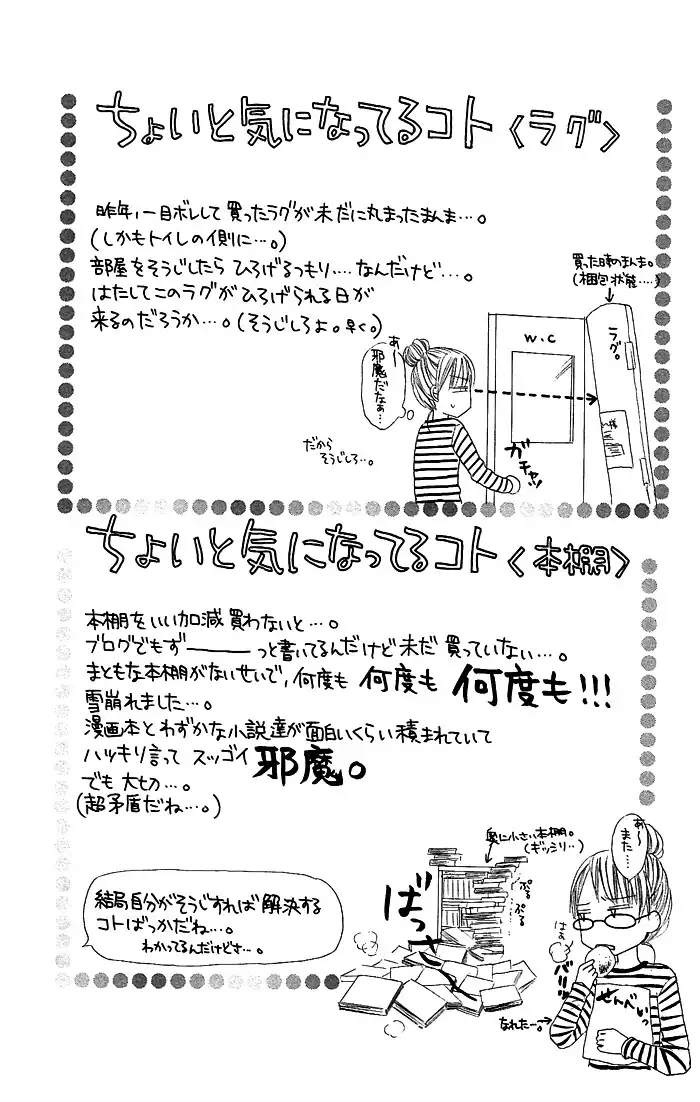 ちょいと気になってるコト〈ラグ〉
昨年、一目ボレして買ったラグが未だに丸まったまんま…。
(しかもトイレの側に…。)
部屋をそうじしたら ひろげるつもり…. なんだけど…。
はたしてこのラグがひろげられる日が
来るのだろうか…。(そうじしろよ。早く。)
買った時のまんま。
(梱包状態….)
ラグ。
W.C
あ〜
邪魔だなぁ…
ガチャッ!!
だから
そうじしろ…。
ちょいと気になってるコト〈本棚〉
本棚をいい加減 買わないと…。
ブログでもず———っと書いてるんだけど未だ 買っていない…。
まともな本棚がないせいで、何度も 何度も 何度も!!!
雪崩れました…。
漫画本とわずかな小説達が面白いくらい積まれていて
ハッキリ言って スッゴイ 邪魔。
でも 大切…。
(超矛盾だね…。)
奥に小さい本棚。
(ギッシリ…)
ぷる
ぷる
ばっさー
あ〜
また…
はぁ〜
バリッ
せんべいっ
なれたー。
結局自分がそうじすれば 解決する
コトばっかだね…。
わかってるんだけどさ…。